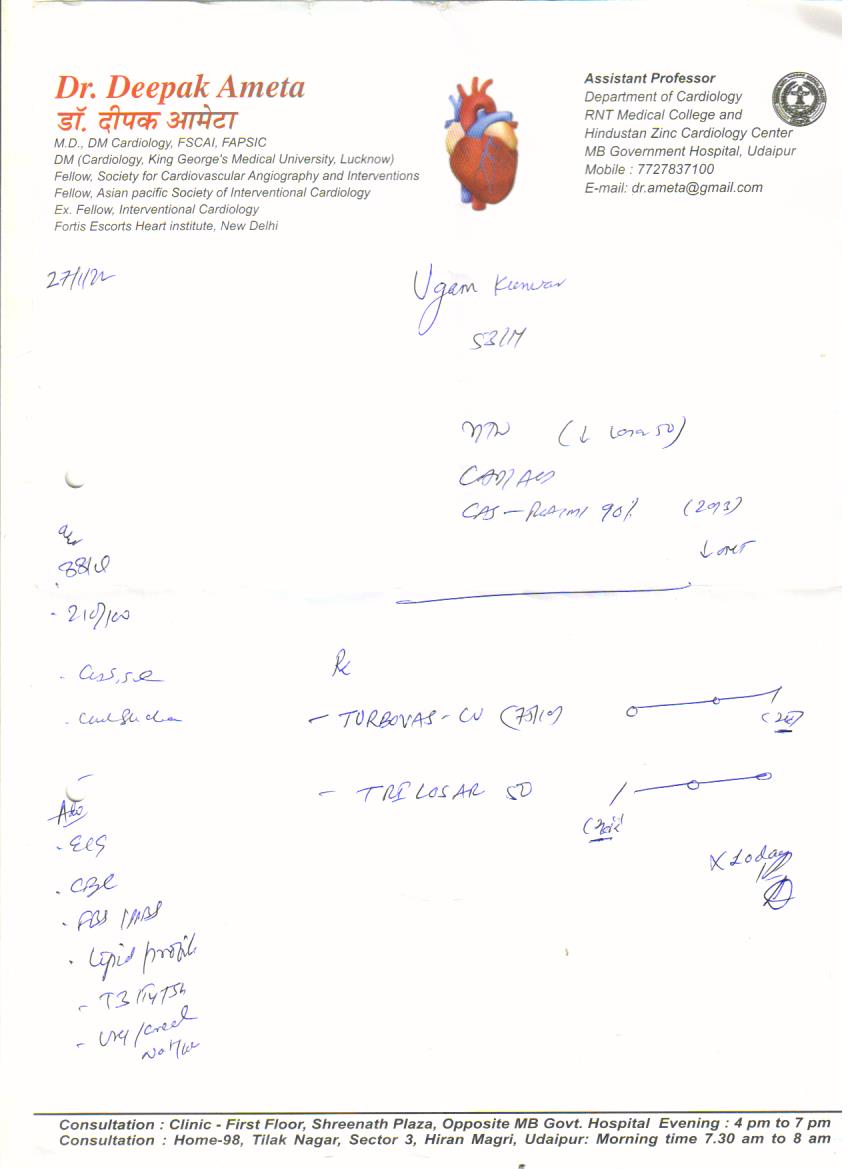 Dr. Deepak Ameta
डॉ. दीपक आमेटा
M.D., DM Cardiology, FSCAI, FAPSIC
DM (Cardiology, King George's Medical University, Lucknow)
Fellow, Society for Cardiovascular Angiography and Interventions
Fellow, Asian pacific Society of Interventional Cardiology
Ex. Fellow, Interventional Cardiology
Fortis Escorts Heart institute, New Delhi
Assistant Professor
Department of Cardiology
RNT Medical College and
Hindustan Zinc Cardiology Center
MB Government Hospital, Udaipur
Mobile : 7727837100
E-mail: dr.ameta@gmail.com
27/1/22
Ugam Kunwar
HTN (↓ Losa 50)
90%
210/100
Rx
- TURBOVAS-CV (75/10)
- TRILOSAR 50
x 10 day
Adv
- ECG
- CBC
- FBS /
- Lipid profile
- T3 T4 TSH
- Urea / Creat
Na+/K+
Consultation : Clinic - First Floor, Shreenath Plaza, Opposite MB Govt. Hospital Evening : 4 pm to 7 pm
Consultation : Home-98, Tilak Nagar, Sector 3, Hiran Magri, Udaipur: Morning time 7.30 am to 8 am